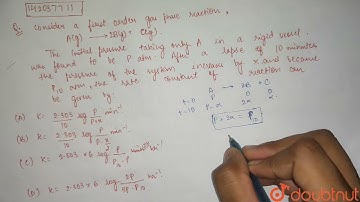 142037711
Q: Consider a first order gas phase reaction,
A(g) → 2B(g) + C(g).
The initial pressure taking only A in a rigid vessel
was found to be P atm. After a lapse of 10 minutes
the pressure of the system increase by x and became
P10 atm. the rate constant of reaction can
be given by:
(A) K = 2.303/10 log P/P-x min⁻¹
(B) K = 2.303/10 log
(C) K = 2.303 × 6 log
(D) K = 2.303 × 6 log 2P/3P-P10 hr⁻¹
A → 2B + C
t=0 P 0 0
t=10 P-x 2x x
P + 2x = P10
doubtnut